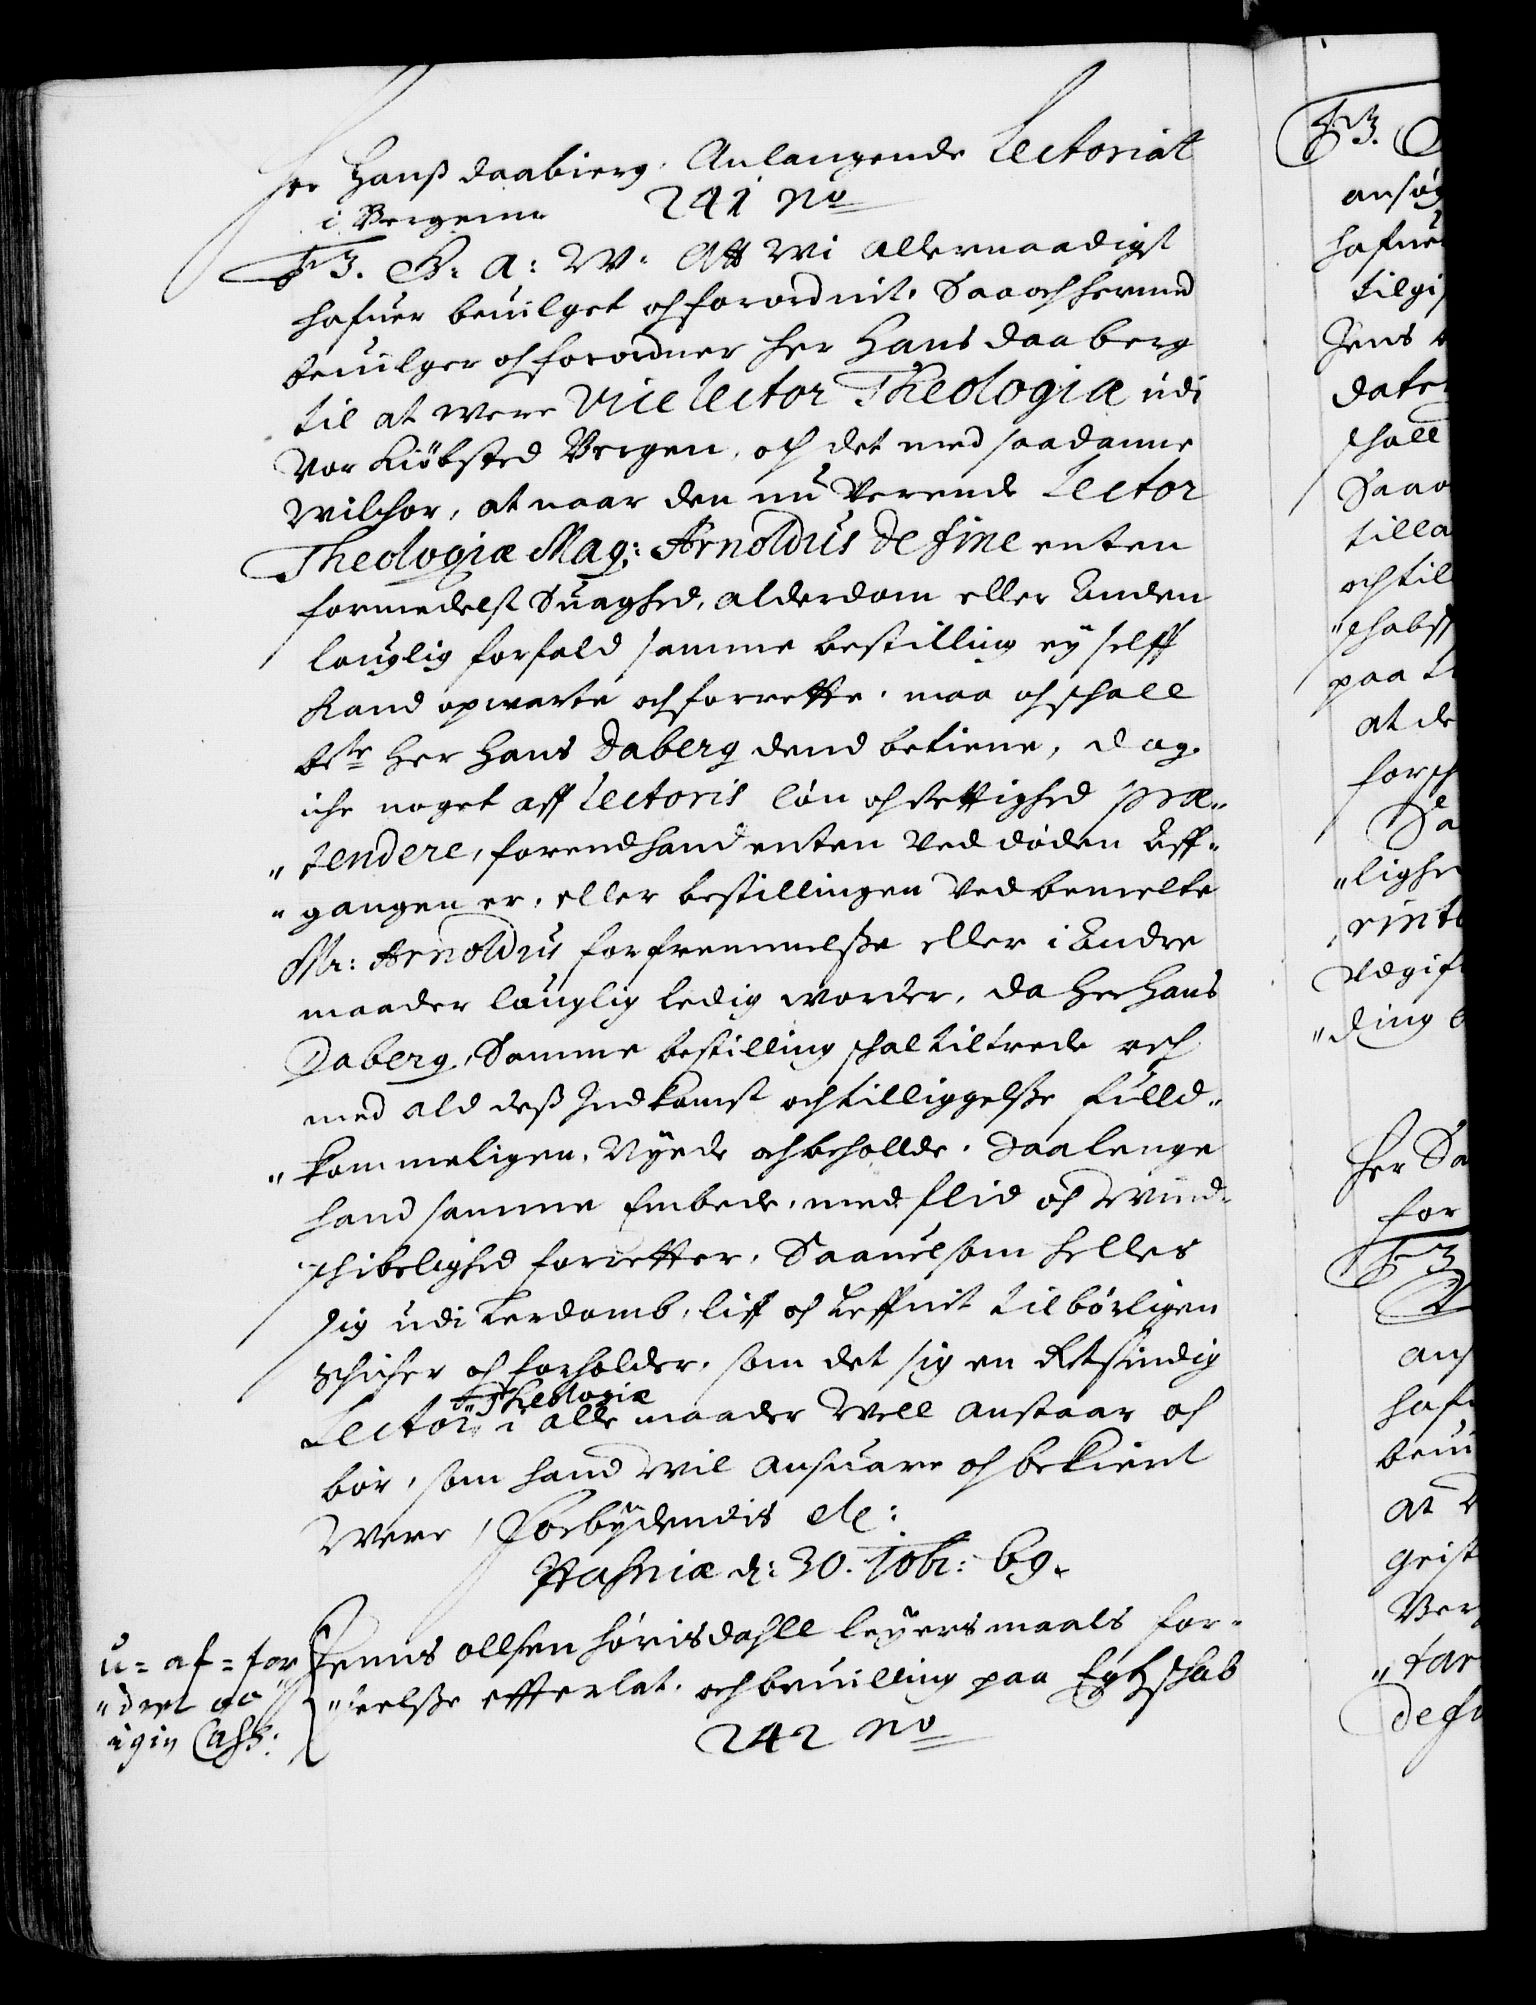 Her Hanss Daabierg. Anlangende Lectoriat
i Bergenn
241 No
F3. G: A: W: Att Wi allernaadigst
hafuer beuilget och forordnit, Saa och hermed
beuilger och forordner Her Hans Daaberg
til at were Vice lector Theologiæ udi
Vor kiøbsted Bergen, och det med saadanne
Wilchor, at naar den nu Verende Lector
Theologiæ Mag: Arnoldus de fine enten
formedelst Suaghed, alderdom eller Anden
lauglig forfald samme bestilling ey selff
kand opwarte och forrette, maa och schall
bte Her Hans Daberg dend betiene, dog
iche noget aff Lectoris løn och Rettighed præ-
"tendere, forend hand enten Ved døden Aff-
"gangen er, eller bestillingen Ved bemelte
Mr: Arnoldus forfremmelsse eller i Andre
maader lauglig ledig worder, da Her Hans
Daberg, Samme bestilling schal tiltrede och
med ald dess Indkomst och tilliggelsse fulld-
"kommeligen, Nyede och beholde. Saalenge
hand samme Embede, med flid og Wind-
schibelighed forretter, Saauelsom helles
sig udi Lerdomb, liff och Leffnit tilbørligen
Schicher och forholder, som det sig en Retsindig
Lector Theologiæ i alle maader Well anstaar och
bør, som hand Wil ansuare och bekient
Were, Forbydendis etc:
Hafniæ d: 30. 10br: 69.
Jenns ollsen Hørisdahll leyersmaals for-
"seelsse efterlat, och beuilling paa Egteschab
242 No
u= af= for
F3.
ansøg
hafue
tilgi
Jens
date
schall
Saa
tilla
och til
paa
at de
forsch
Sa
"lighe
Udgif
"ding
Her Sa
for
F3
ans
hafu
beui
at
geist
Ber
"tar
defi